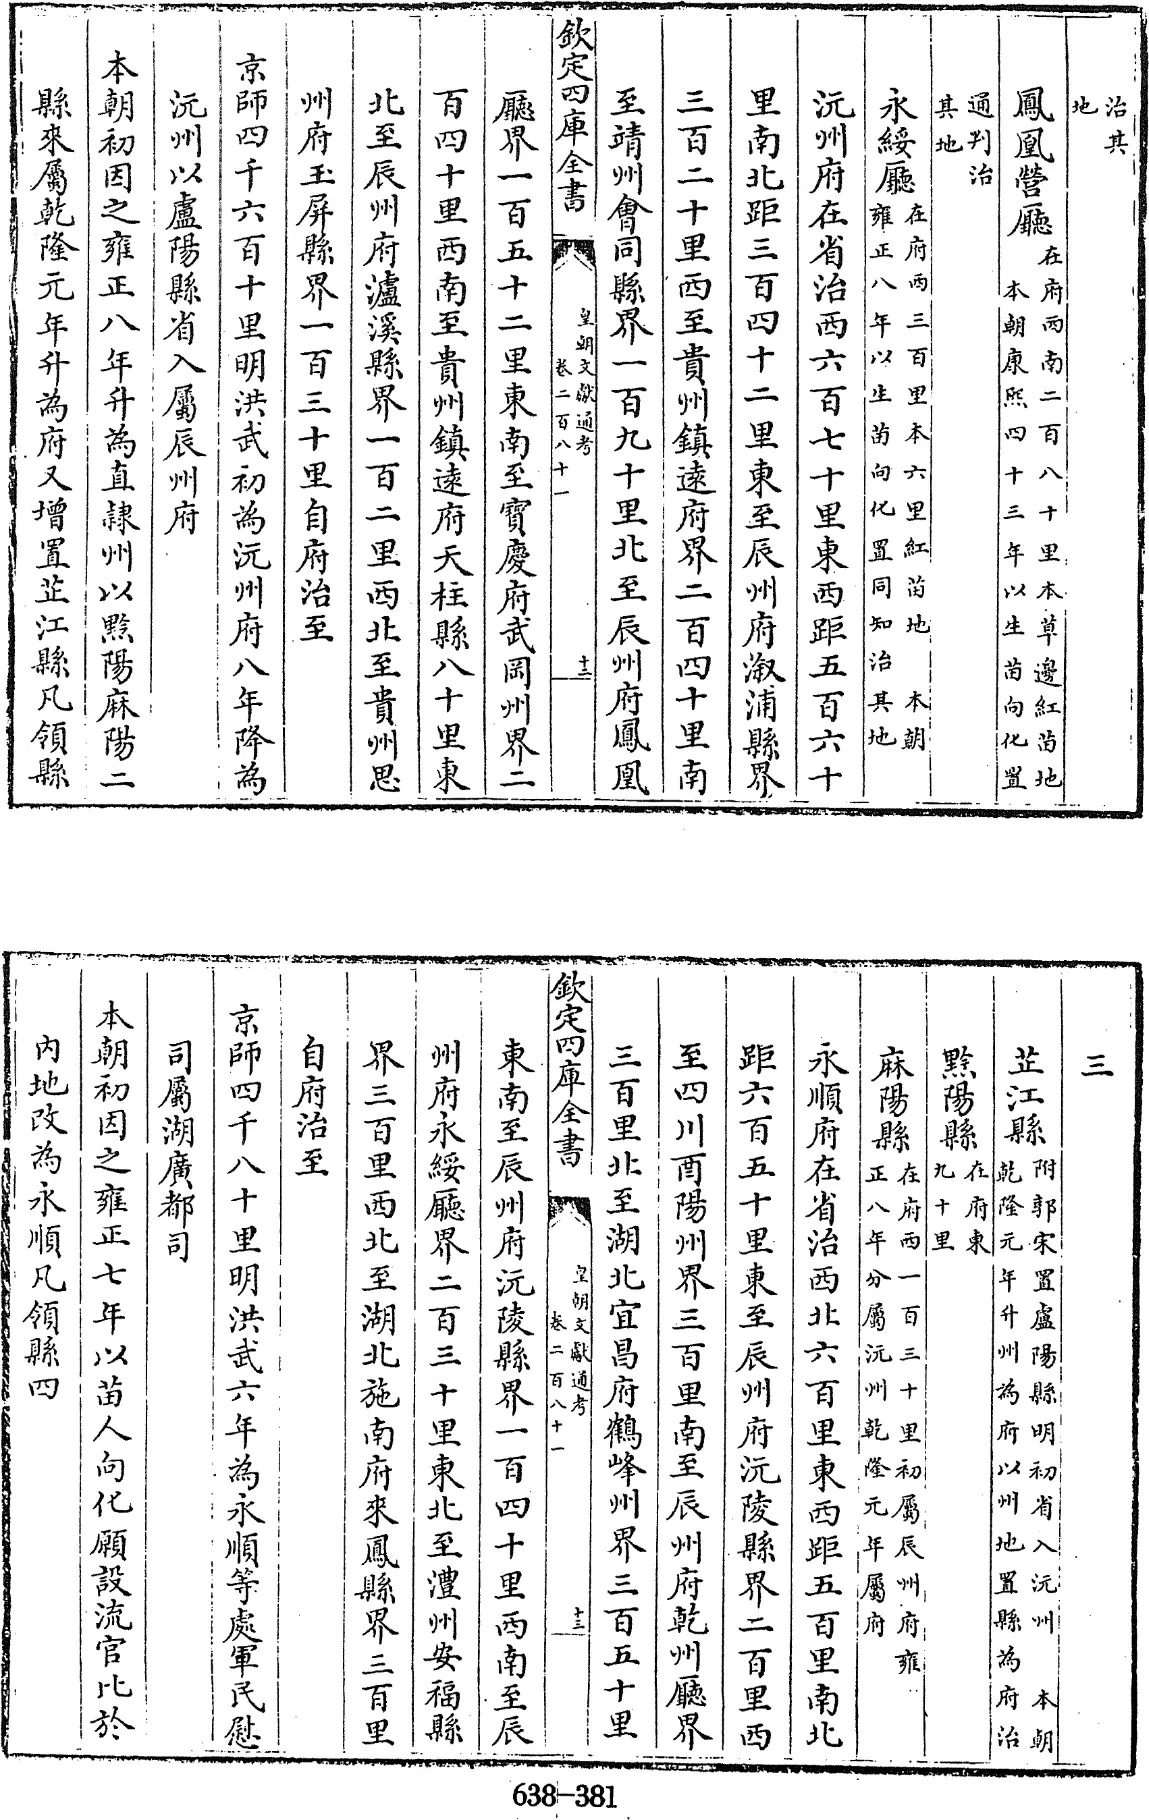 治其
地
鳳凰營廳在府西南二百八十里本草邊紅苗地
本朝康熙四十三年以生苗向化置
通判治
其地
永綏廳在府西三百里本六里紅苗地 本朝
雍正八年以生苗向化置同知治其地
沅州府在省治西六百七十里東西距五百六十
里南北距三百四十二里東至辰州府溆浦縣界
三百二十里西至貴州鎮遠府界二百四十里南
至靖州會同縣界一百九十里北至辰州府鳳凰
欽定四庫全書
皇朝文獻通考
卷二百八十一
十三
廳界一百五十二里東南至寶慶府武岡州界二
百四十里西南至貴州鎮遠府天柱縣八十里東
北至辰州府瀘溪縣界一百二里西北至貴州思
州府玉屏縣界一百三十里自府治至
京師四千六百十里明洪武初為沅州府八年降為
沅州以盧陽縣省入屬辰州府
本朝初因之雍正八年升為直隷州以黔陽麻陽二
縣來屬乾隆元年升為府又增置芷江縣凡領縣
三
芷江縣附郭宋置盧陽縣明初省入沅州 本朝
乾隆元年升州為府以州地置縣為府治
黔陽縣在府東
九十里
麻陽縣在府西一百三十里初屬辰州府雍
正八年分屬沅州乾隆元年屬府
永順府在省治西北六百里東西距五百里南北
距六百五十里東至辰州府沅陵縣界二百里西
至四川酉陽州界三百里南至辰州府乾州廳界
三百里北至湖北宜昌府鶴峰州界三百五十里
欽定四庫全書
皇朝文獻通考
卷二百八十一
十三
東南至辰州府沅陵縣界一百四十里西南至辰
州府永綏廳界二百三十里東北至澧州安福縣
界三百里西北至湖北施南府來鳳縣界三百里
自府治至
京師四千八十里明洪武六年為永順等處軍民慰
司屬湖廣都司
本朝初因之雍正七年以苗人向化願設流官比於
內地改為永順凡領縣四
638-381